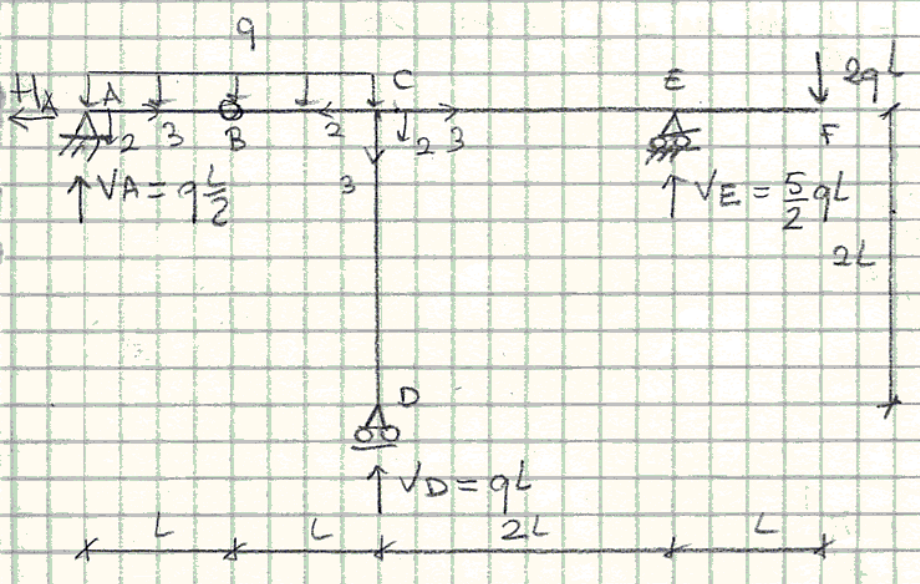 q
C
E
2qL
HA
A
2
3
B
2
2
3
F
3
VA = q L/2
VE = 5/2 qL
2L
D
VD = qL
L
L
2L
L